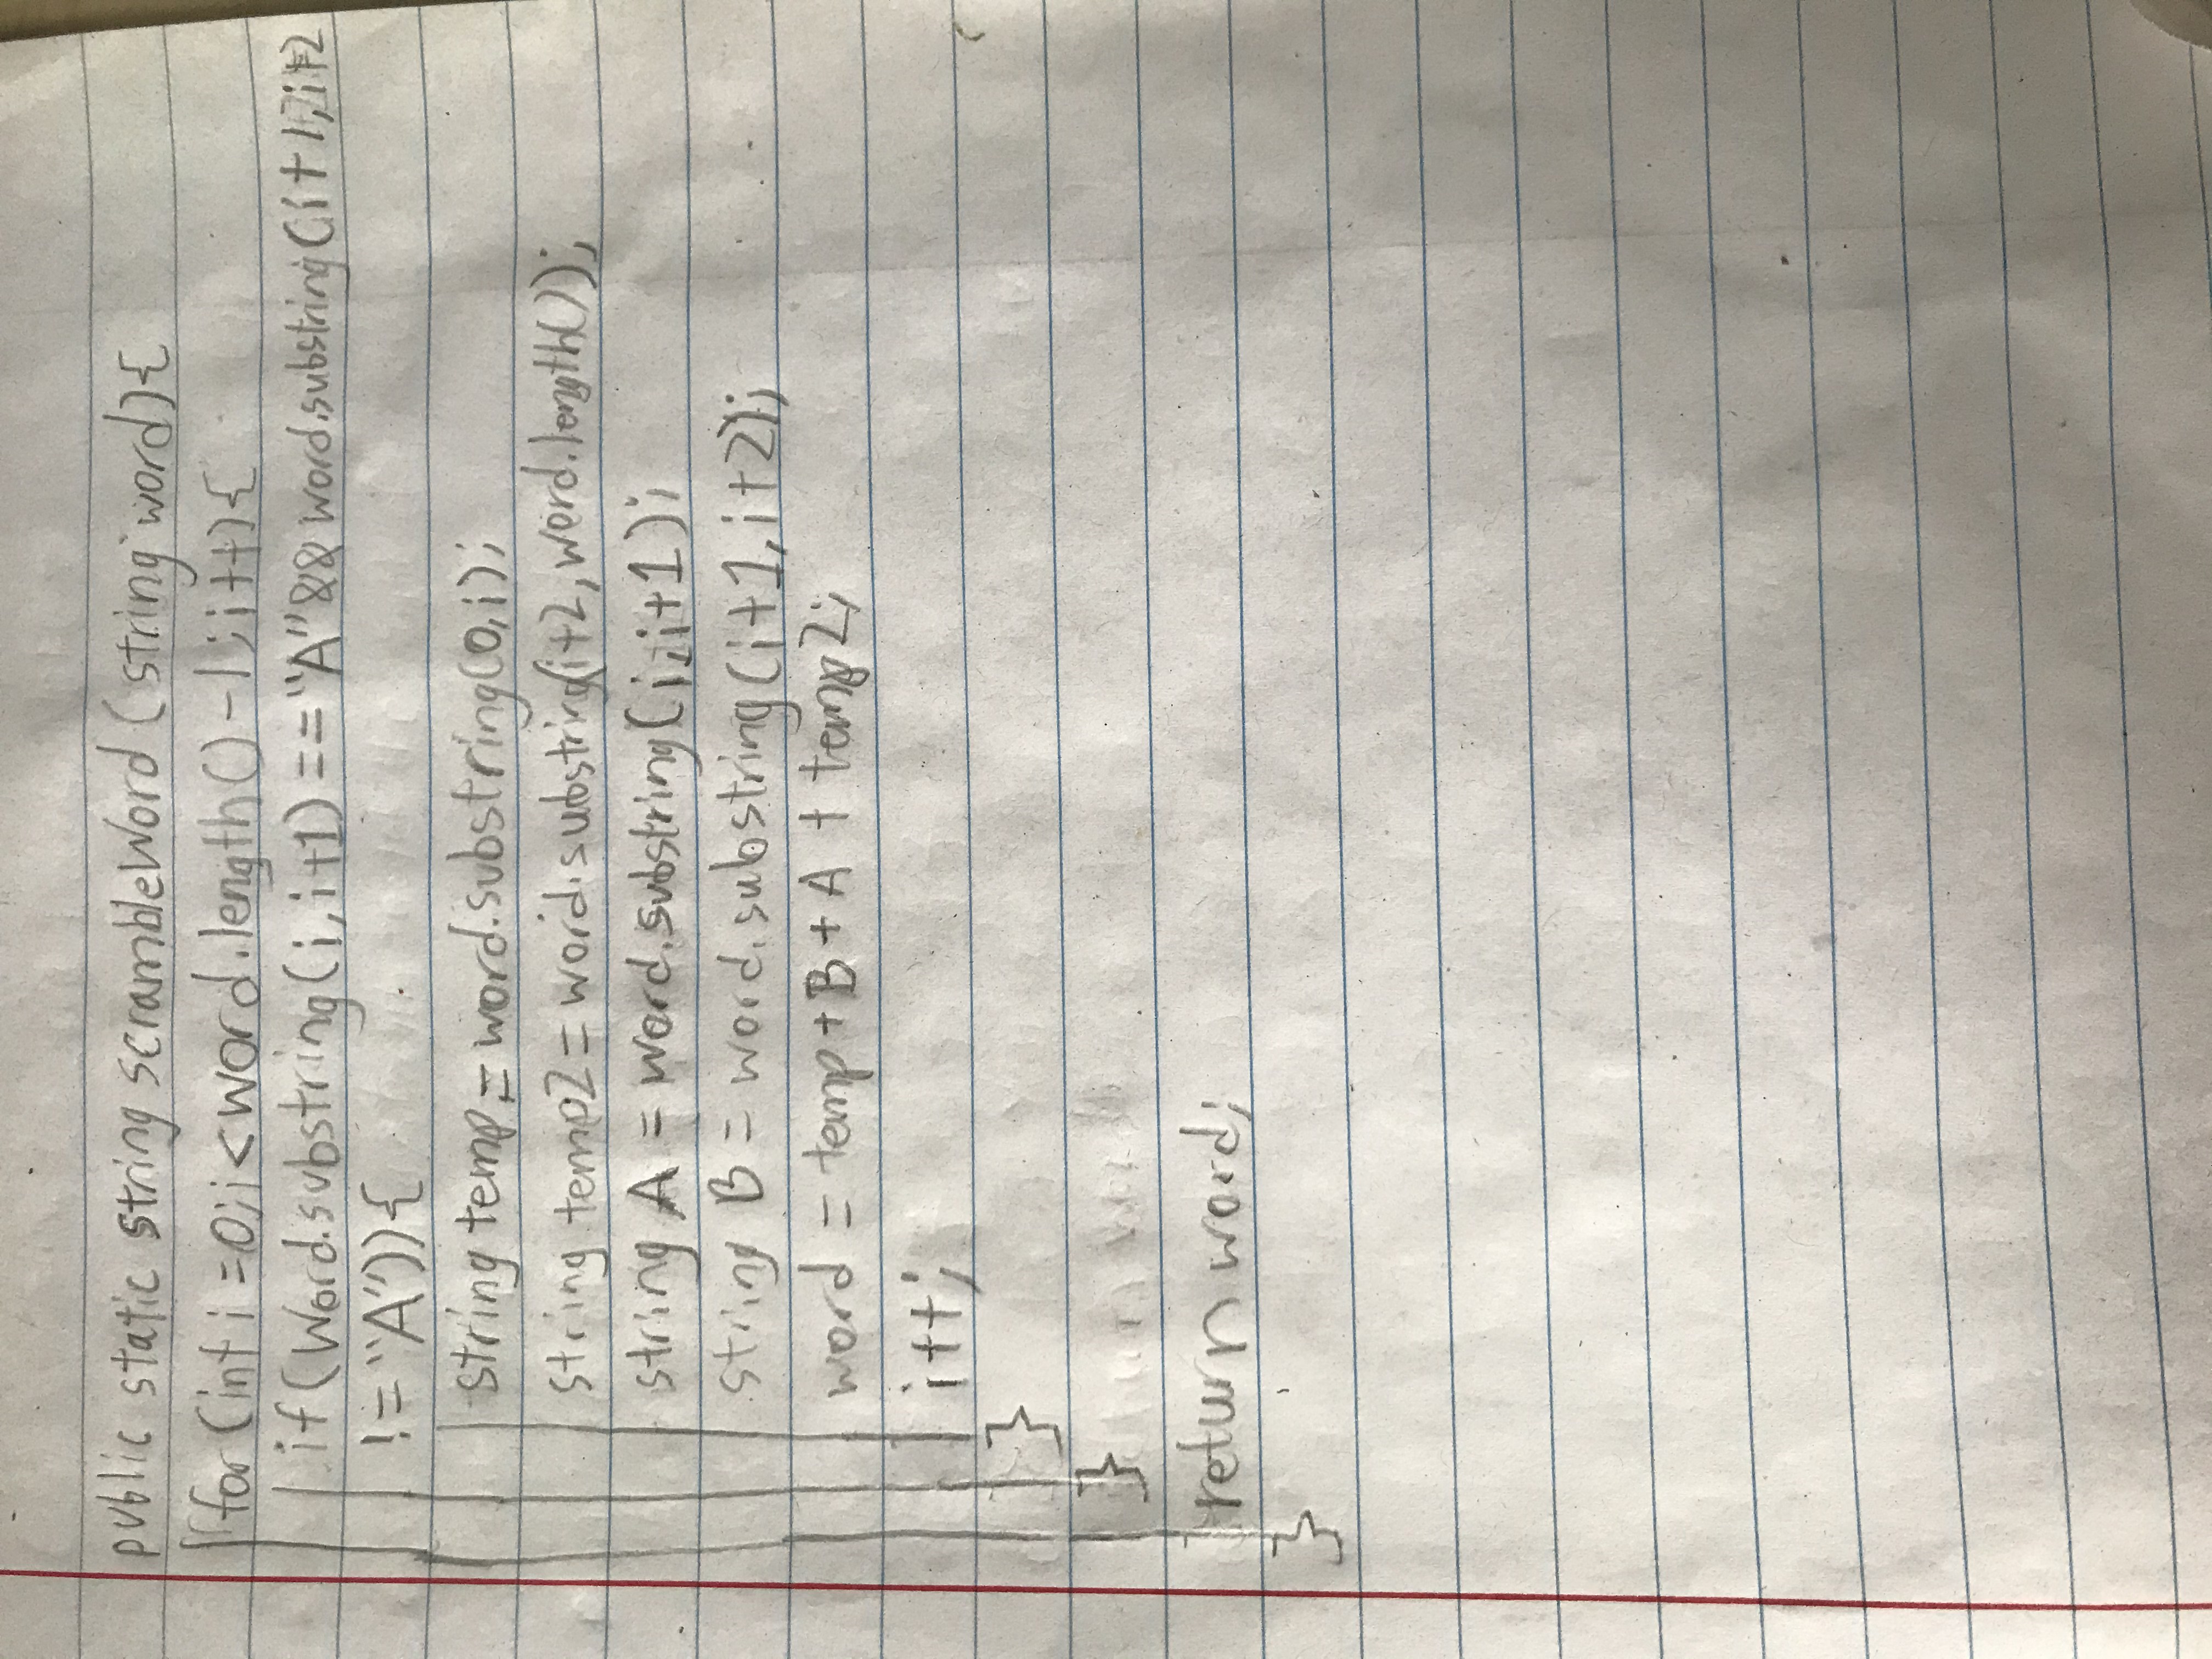 public static string scrambleWord (string word){
for (int i =0;i<word.length()-1;i++){
if(Word.substring(i,i+1)=="A"&&word.substring(i+1,i+2
!="A")){
string temp=word.substring(0,i);
string temp2=word.substring(i+2,word.length());
string A = word.substring(i,i+1);
string B = word.substring(i+1,i+2);
word = temp+B+A + temp2;
i++;
}
}
return word;
}